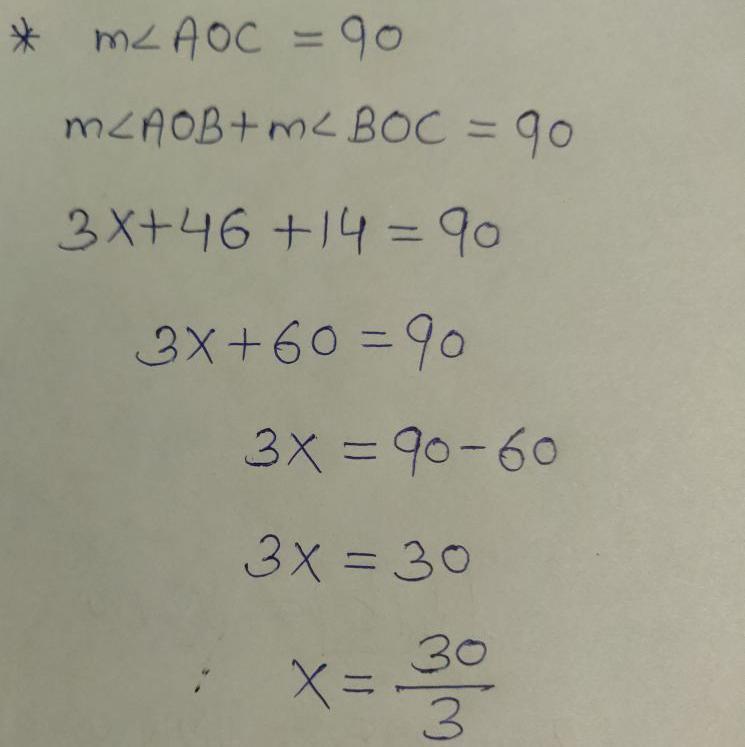 * m∠AOC = 90
m∠AOB + m∠BOC = 90
3x + 46 + 14 = 90
3x + 60 = 90
3x = 90 - 60
3x = 30
x = 30/3